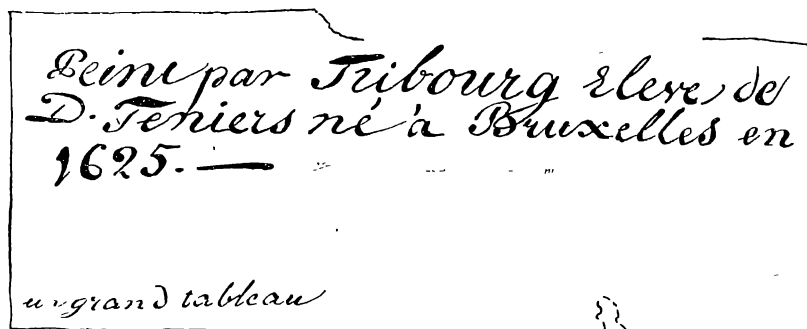 Peint par Tribourg Eleve de
D. Teniers né à Bruxelles en
1625. —
un grand tableau